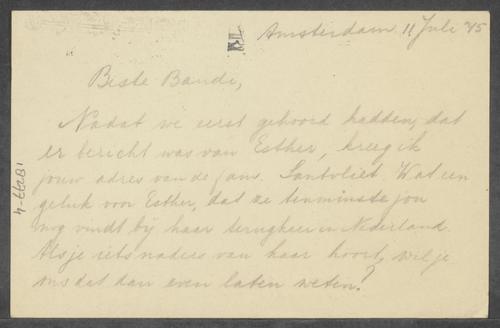 Amsterdam 11 Juli '45
Beste Bandi,
Nadat we eerst gehoord hadden, dat
er bericht was van Esther, kreeg ik
jouw adres van de fam. Santvliet. Wat een
geluk voor Esther, dat ze tenminste jou
nog vindt bij haar terugkeer in Nederland.
Als je iets naders van haar hoort, wil je
ons dat dan even laten weten?